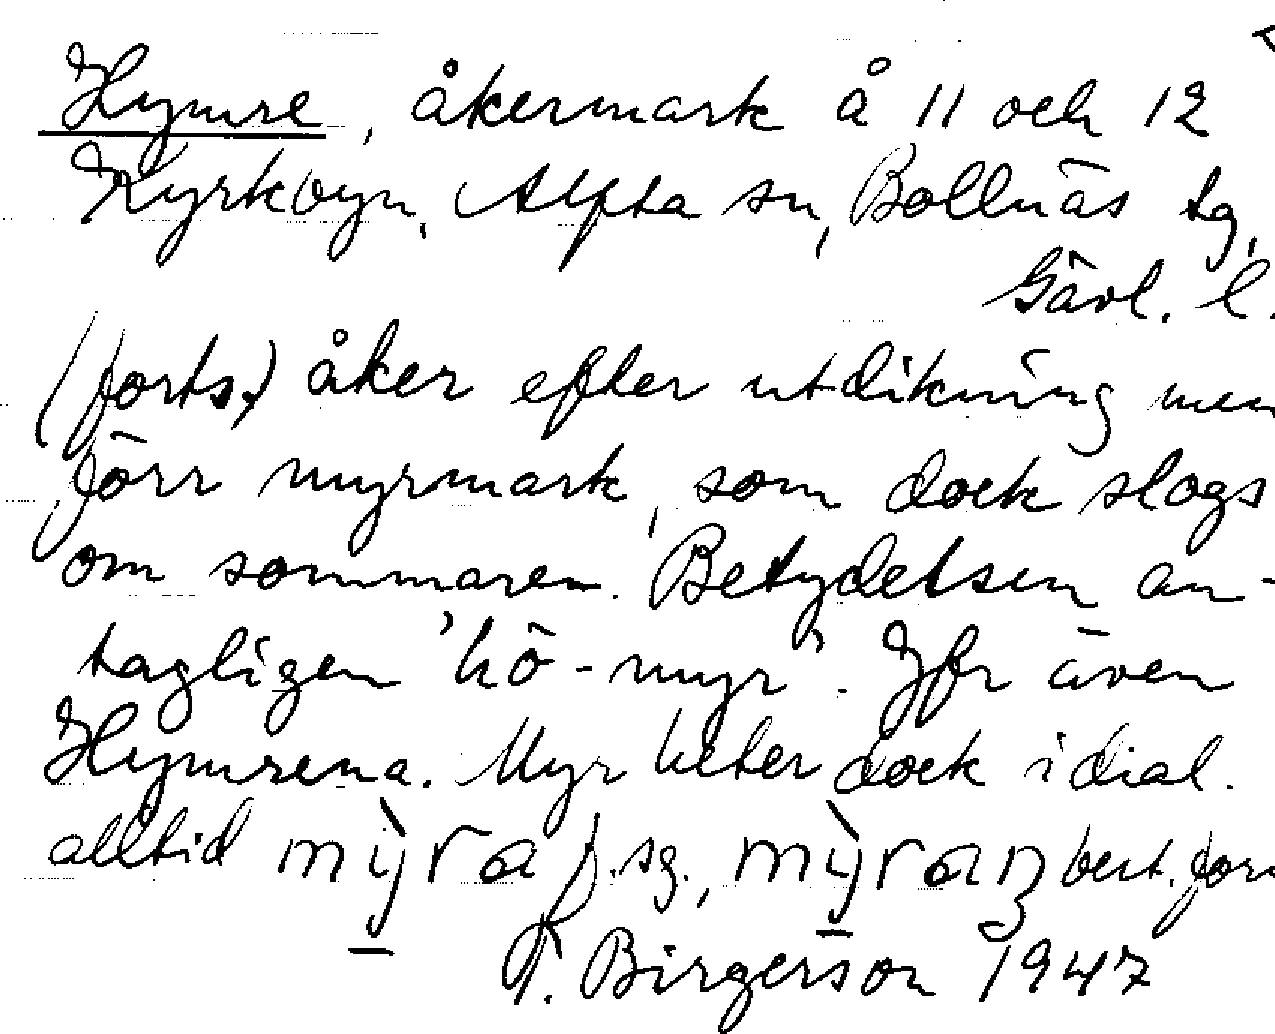 Hymre, åkermark å 11 och 12
Kyrkbyn, Alfta sn, Bollnäs tg,
Gävl. l.
(forts.) åker efter utdikning men
förr myrmark, som dock slogs
om sommaren. Betydelsen an-
tagligen "hö-myr". Jfr även
Hymrena. Myr heter dock i dial.
alltid mỳra f. sg., mỳran best. form
P. Birgerson 1947